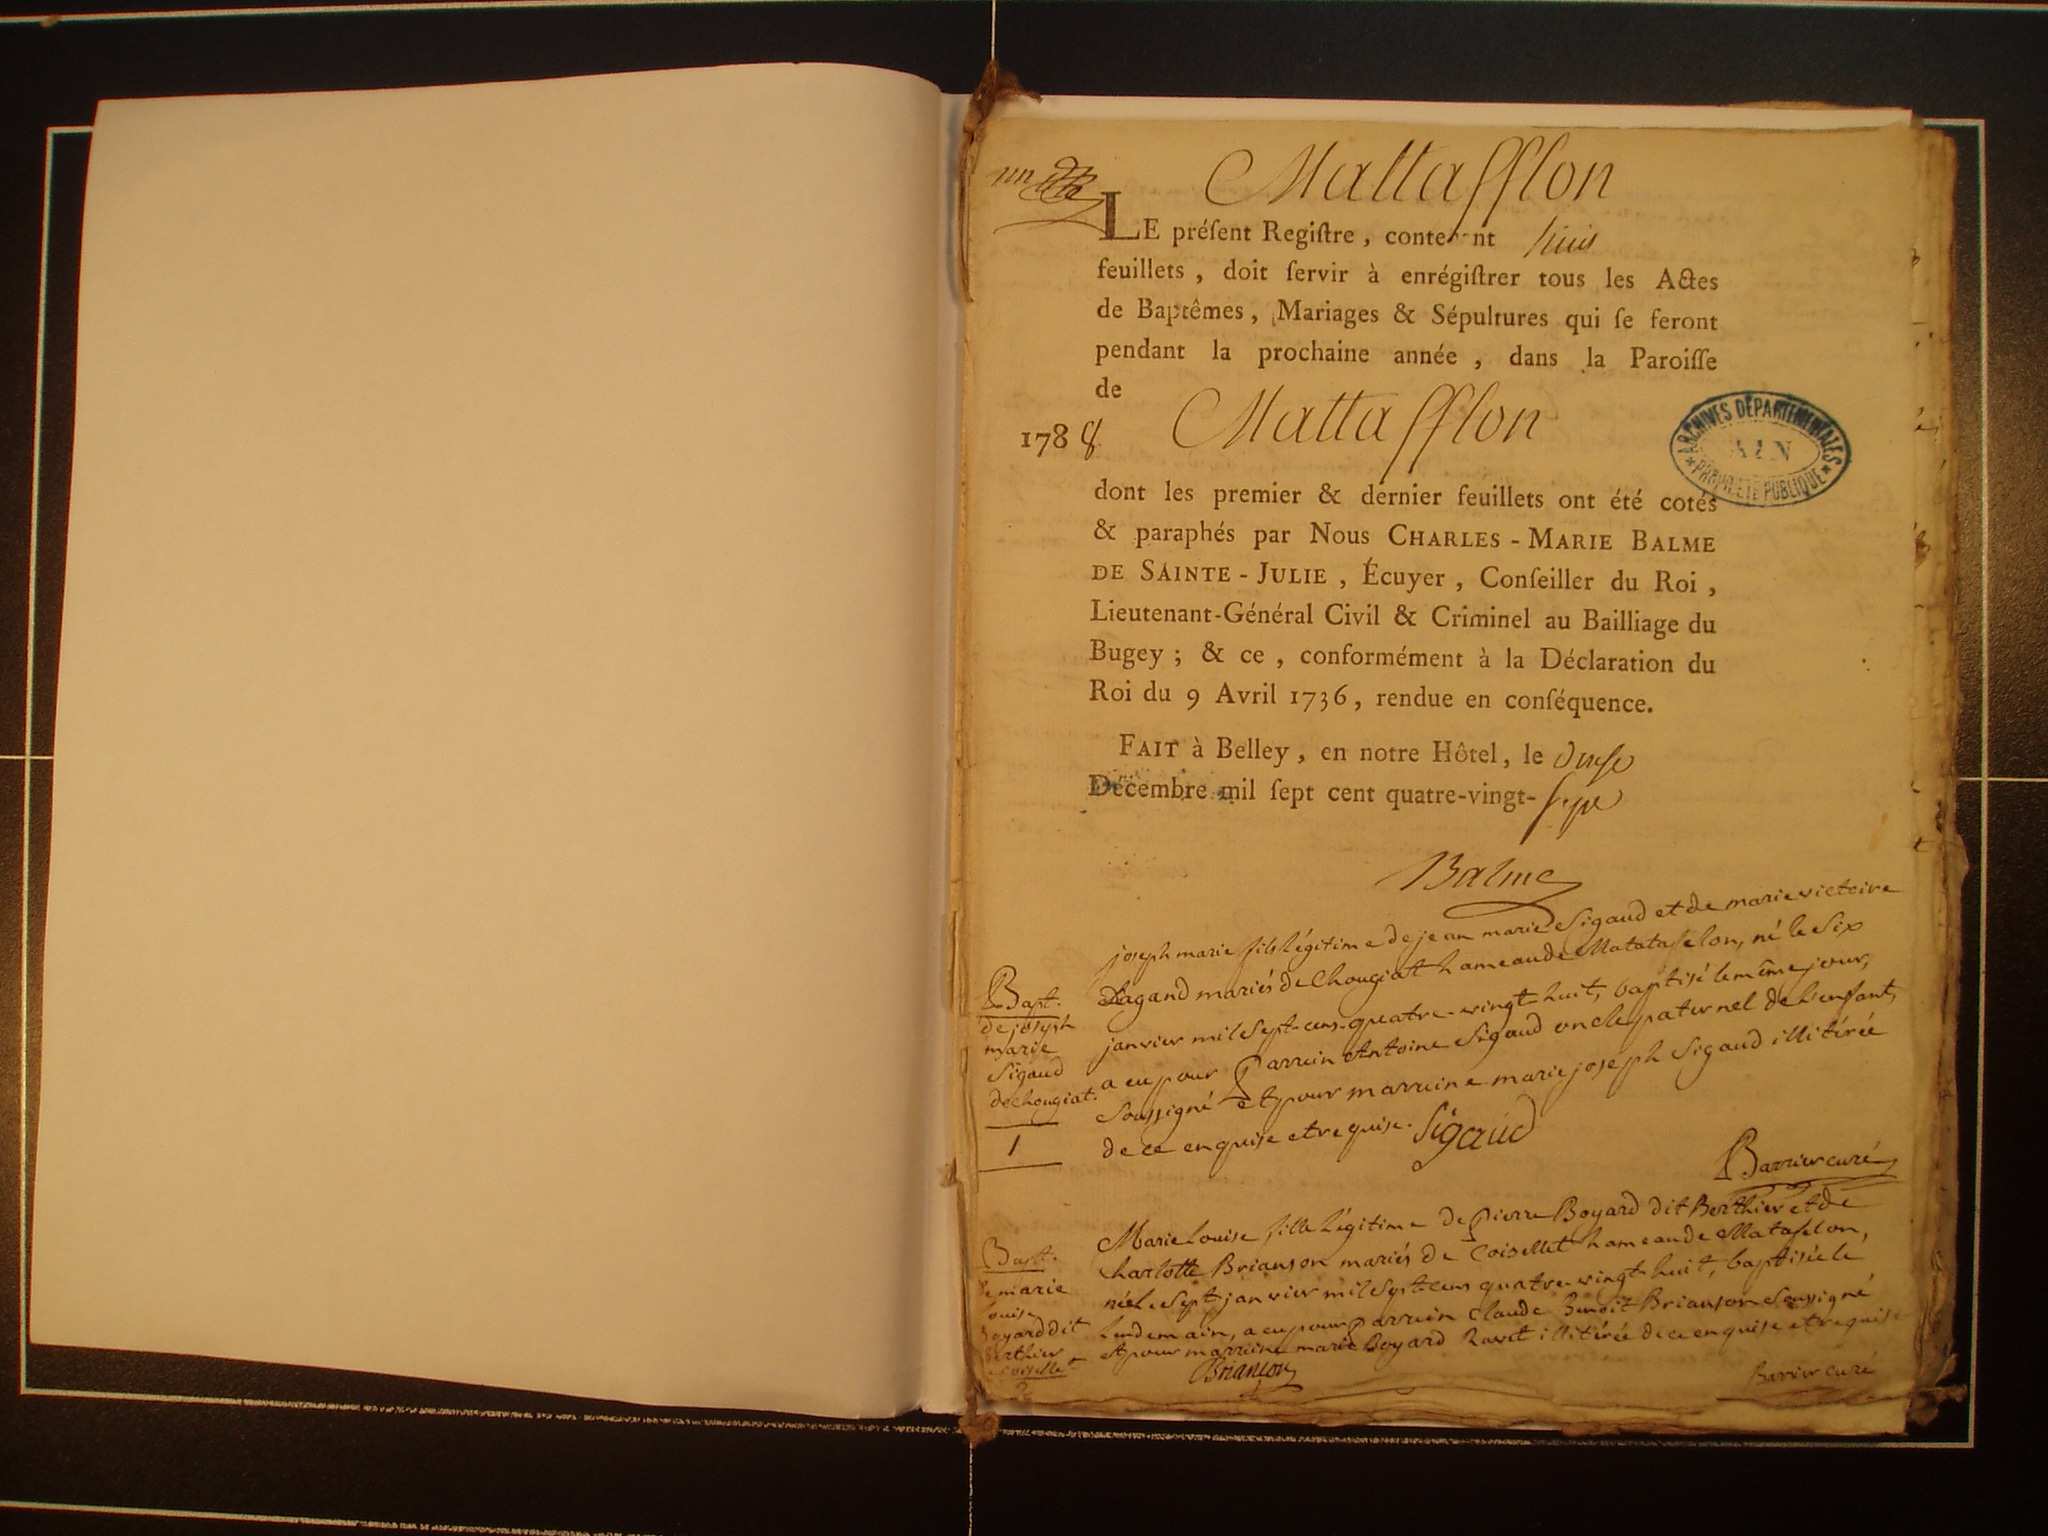 un
Mattafflon
LE préſent Regiſtre, contenant huit
feuillets, doit ſervir à enrégiſtrer tous les Actes
de Baptêmes, Mariages & Sépultures qui ſe feront
pendant la prochaine année, dans la Paroiſſe
de
1788 Mattafflon
ARCHIVES DÉPARTEMENTALES
AIN
* PROPRIÉTÉ PUBLIQUE *
dont les premier & dernier feuillets ont été cotés
& paraphés par Nous CHARLES-MARIE BALME
DE SAINTE-JULIE, Écuyer, Conſeiller du Roi,
Lieutenant-Général Civil & Criminel au Bailliage du
Bugey; & ce, conformément à la Déclaration du
Roi du 9 Avril 1736, rendue en conſéquence.
FAIT à Belley, en notre Hôtel, le
Décembre mil ſept cent quatre-vingt-sept
Balme
Bapt.
de joseph
marie
Sigaud
de chougiat.
1
joseph marie fils légitime de jean marie Sigaud et de marie victoire
Lagand mariés de Chougiat hameau de Matafelon, né le six
janvier mil sept-cens-quatre-vingt-huit, baptisé le même jour,
a eu pour parrein Antoine Sigaud oncle paternel de l'enfant,
soussigné et pour marreine marie joseph Sigaud illitérée
de ce enquise et requise. Sigaud
Barrier curé
Bapt.
de marie
louise
Boyard dit
Berthier
Coisellet
2
Marie Louise fille légitime de pierre Boyard dit Berthier et de
Charlotte Brianson mariés de Coisellet hameau de Matafelon,
née le sept janvier mil sept-cens quatre-vingt-huit, baptisée le
lendemain, a eu pour parrein Claude Benoit Brianson soussigné
et pour marreine marie Boyard illitérée de ce enquise et requise
Briançon
Barrier curé